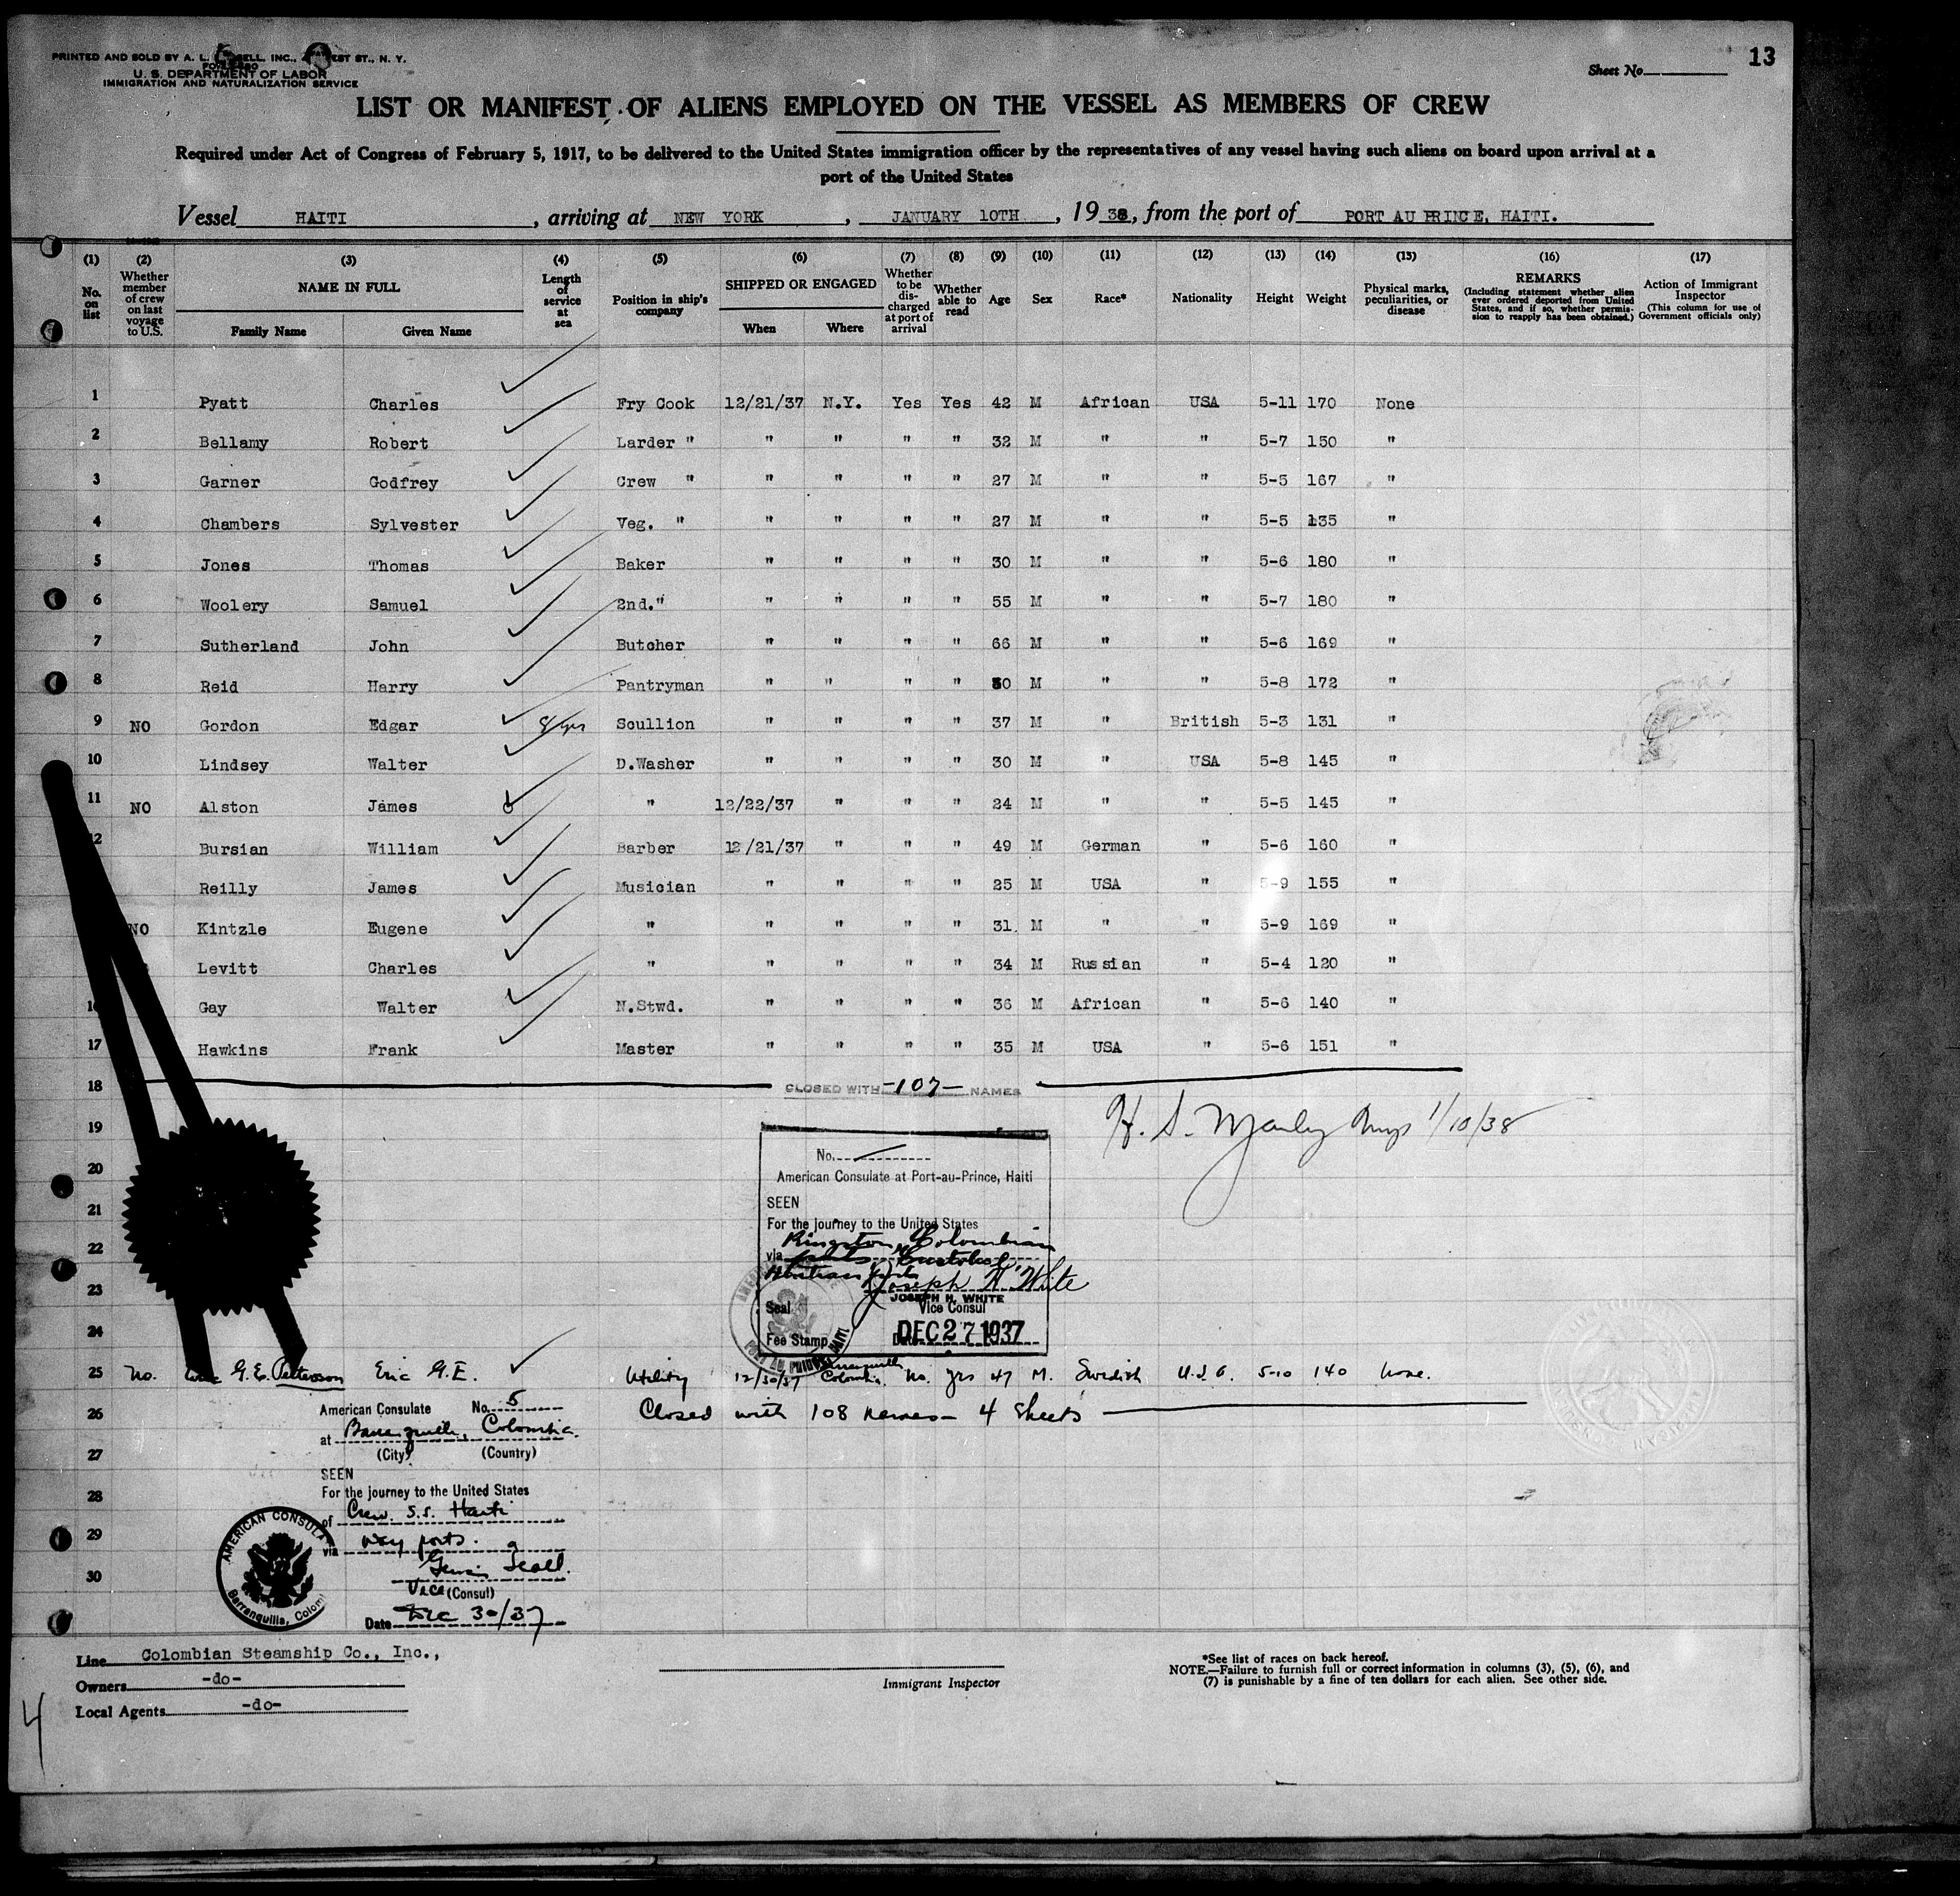 PRINTED AND SOLD BY A. L. SELL, INC., EST ST., N. Y.
U. S. DEPARTMENT OF LABOR
IMMIGRATION AND NATURALIZATION SERVICE
Sheet No. 13
LIST OR MANIFEST OF ALIENS EMPLOYED ON THE VESSEL AS MEMBERS OF CREW
Required under Act of Congress of February 5, 1917, to be delivered to the United States immigration officer by the representatives of any vessel having such aliens on board upon arrival at a
port of the United States
Vessel HAITI, arriving at NEW YORK, JANUARY 10TH, 1938, from the port of PORT AU PRINCE, HAITI.
(1) No. on list (2) Whether member of crew on last voyage to U.S. (3) NAME IN FULL Family Name Given Name (4) Length of service at sea (5) Position in ship's company (6) SHIPPED OR ENGAGED When Where (7) Whether to be discharged at port of arrival (8) Whether able to read (9) Age (10) Sex (11) Race* (12) Nationality (13) Height (14) Weight (15) Physical marks, peculiarities, or disease (16) REMARKS (Including statement whether alien ever ordered deported from United States, and if so, whether permission to reapply has been obtained.) (17) Action of Immigrant Inspector (This column for use of Government officials only)
1 Pyatt Charles Fry Cook 12/21/37 N.Y. Yes Yes 42 M African USA 5-11 170 None
2 Bellamy Robert Larder " " " " " 32 M " " 5-7 150 "
3 Garner Godfrey Crew " " " " " 27 M " " 5-5 167 "
4 Chambers Sylvester Veg. " " " " " 27 M " " 5-5 135 "
5 Jones Thomas Baker " " " " 30 M " " 5-6 180 "
6 Woolery Samuel 2nd." " " " " 55 M " " 5-7 180 "
7 Sutherland John Butcher " " " " 66 M " " 5-6 169 "
8 Reid Harry Pantryman " " " " 30 M " " 5-8 172 "
9 NO Gordon Edgar 8 yrs Scullion " " " " 37 M " British 5-3 131 "
10 Lindsey Walter D.Washer " " " " 30 M " USA 5-8 145 "
11 NO Alston James " 12/22/37 " " " 24 M " " 5-5 145 "
12 Bursian William Barber 12/21/37 " " " 49 M German " 5-6 160 "
Reilly James Musician " " " " 25 M USA " 5-9 155 "
NO Kintzle Eugene " " " " " 31 M " " 5-9 169 "
Levitt Charles " " " " " 34 M Russian " 5-4 120 "
16 Gay Walter N.Stwd. " " " " 36 M African " 5-6 140 "
17 Hawkins Frank Master " " " " 35 M USA " 5-6 151 "
18 CLOSED WITH -107- NAMES
H. S. Manley Insp 1/10/38
19
20
21
22
23
24
No.
American Consulate at Port-au-Prince, Haiti
SEEN
For the journey to the United States
Kingston, Colombian
via ports, Cristobal,
Haitian ports
Joseph H. White
JOSEPH H. WHITE
Seal Vice Consul
Fee Stamp Date DEC 27 1937
25 No. G.E. Petterson Eric G.E. Utility 12/30/37 Barranquilla Colombia No. yes 47 M. Swedish U.S.A. 5-10 140 None.
26 Closed with 108 names - 4 Sheets
27
28
29
30
American Consulate No. 5
at Barranquilla, Colombia.
(City) (Country)
SEEN
For the journey to the United States
of Crew S.S. Haiti
via way ports.
Vice (Consul)
Date Dec 30/37
AMERICAN CONSULA
Barranquilla, Colom
Line Colombian Steamship Co., Inc.,
Owners -do-
Local Agents -do-
Immigrant Inspector
*See list of races on back hereof.
NOTE.—Failure to furnish full or correct information in columns (3), (5), (6), and
(7) is punishable by a fine of ten dollars for each alien. See other side.
4